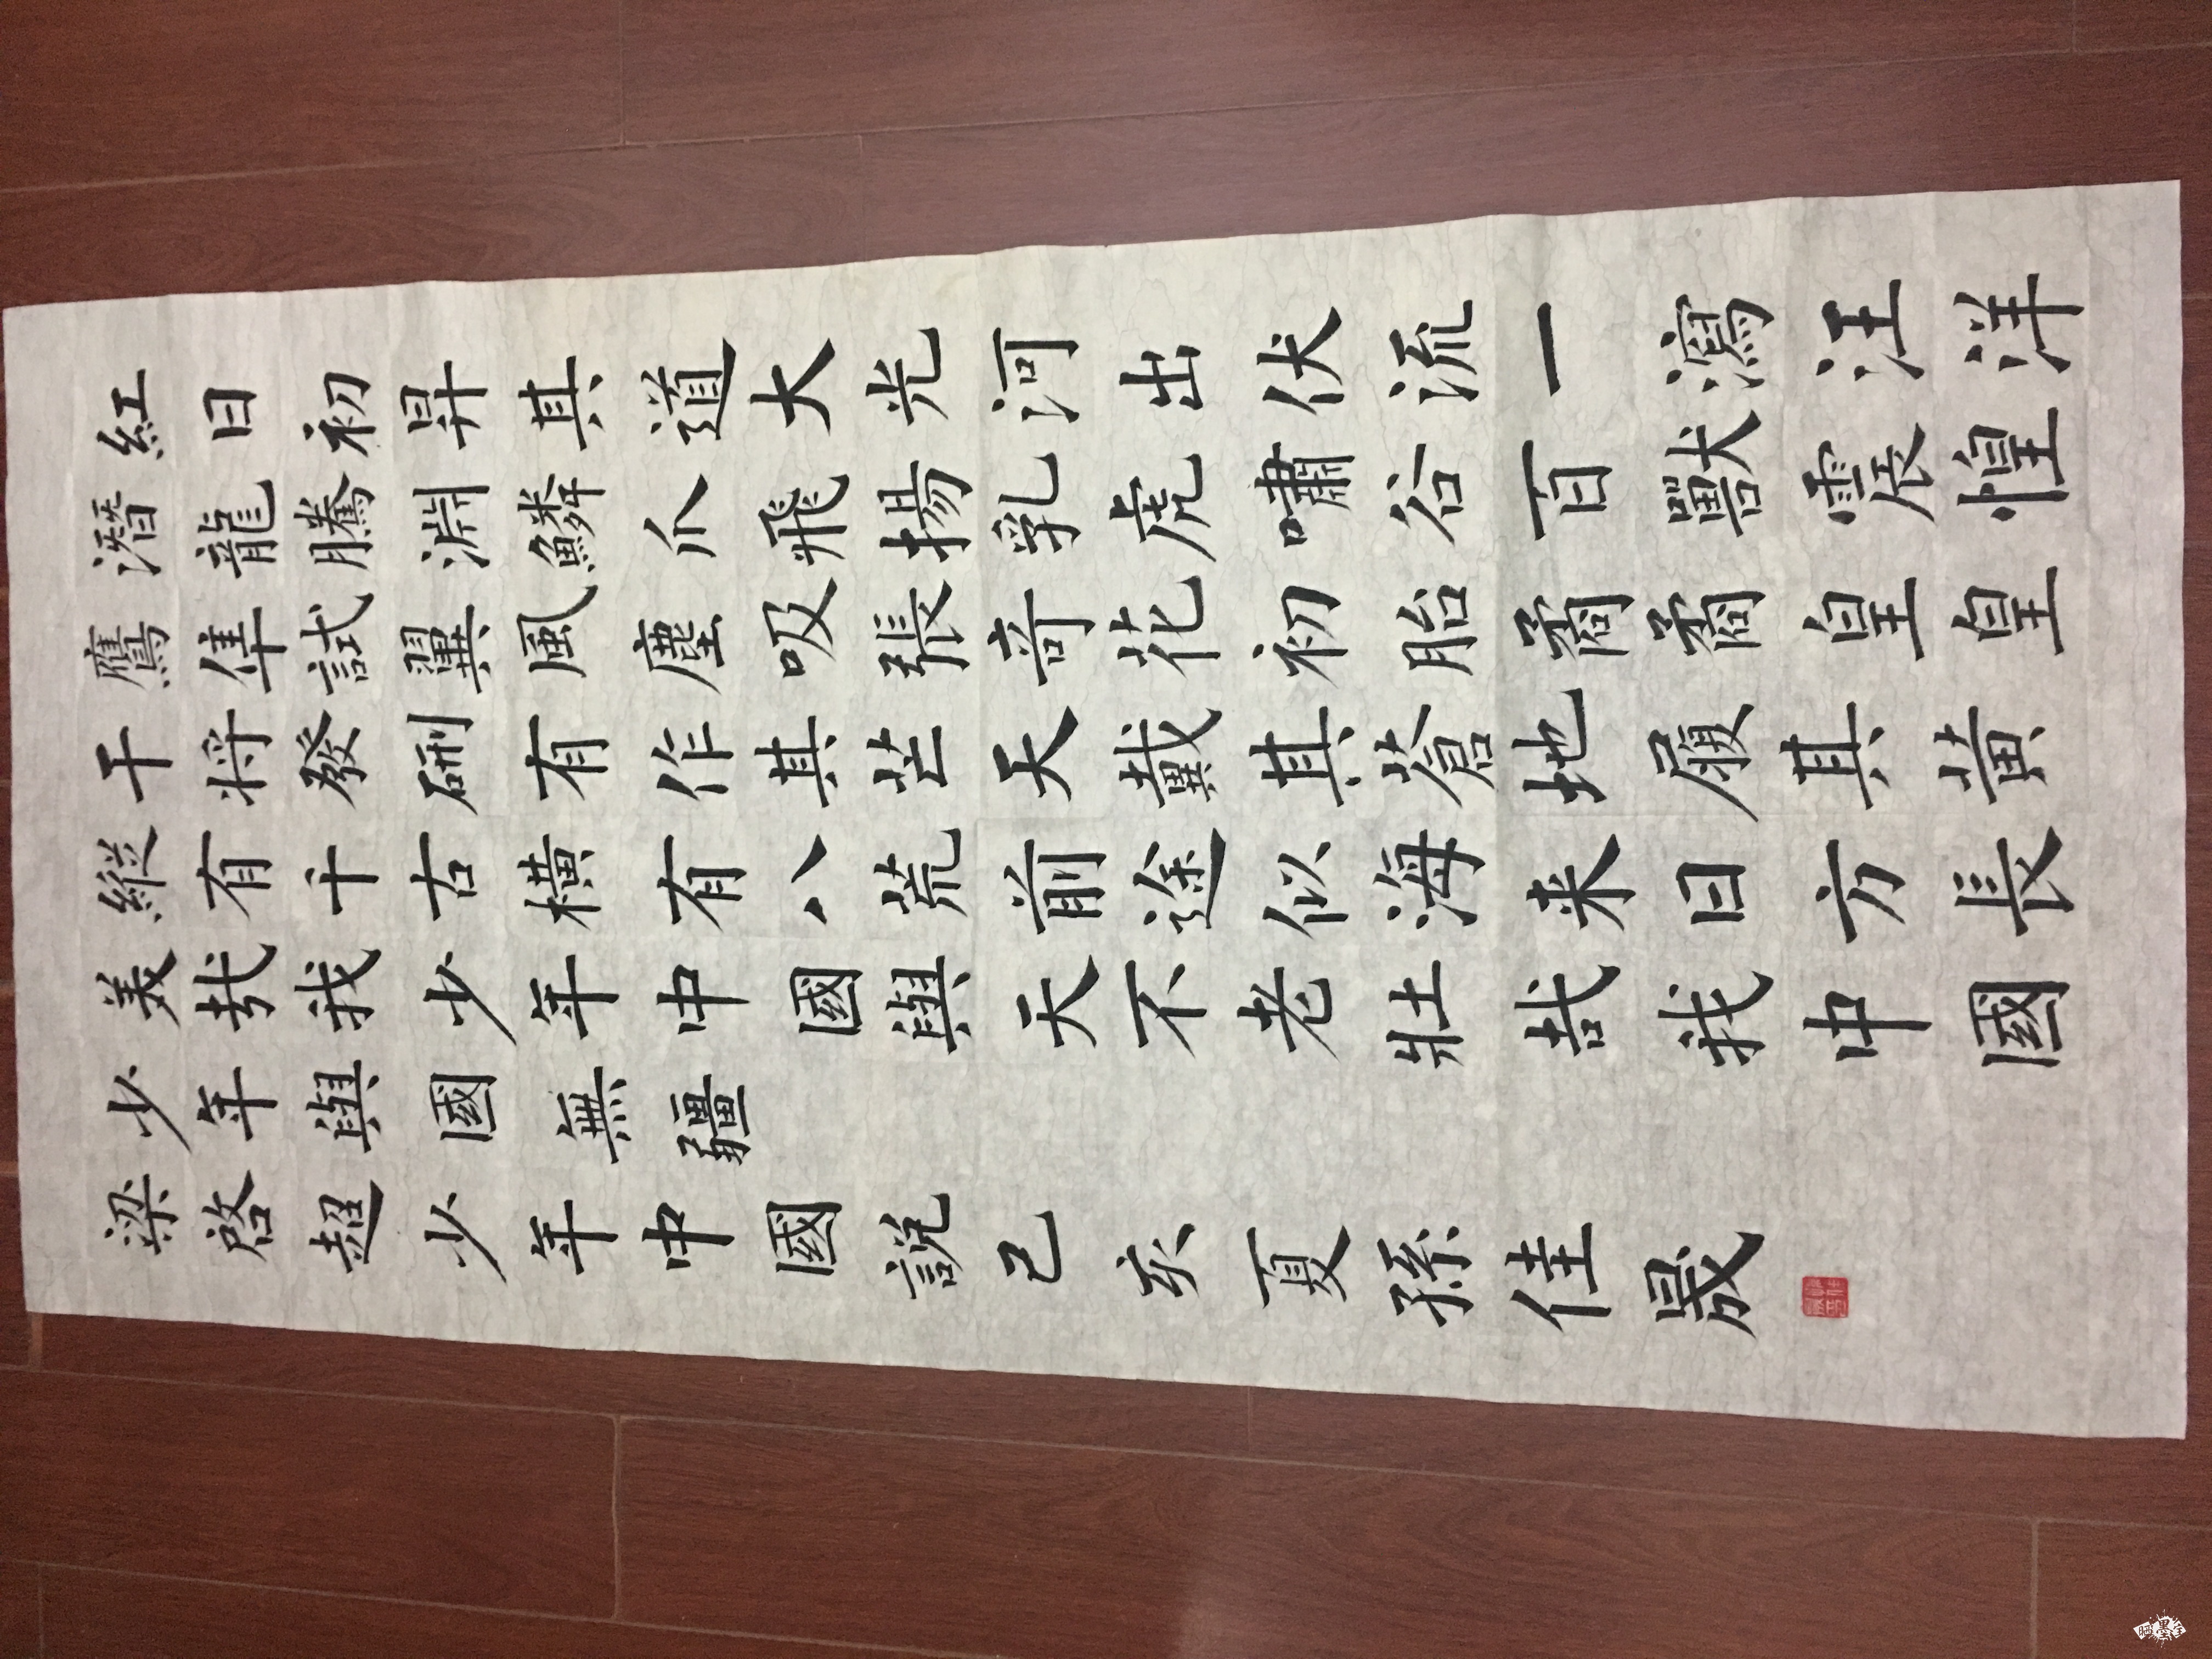 紅日初昇其道大光河出伏流一瀉汪洋
潛龍騰淵鱗爪飛揚乳虎嘯谷百獸震惶
鷹隼試翼風塵吸張奇花初胎矞矞皇皇
干将發硎有作其芒天戴其蒼地履其黃
縱有千古橫有八荒前途似海来日方長
美哉我少年中國與天不老壯哉我中國
少年與國無疆
梁啓超少年中國說己亥夏孫佳晟